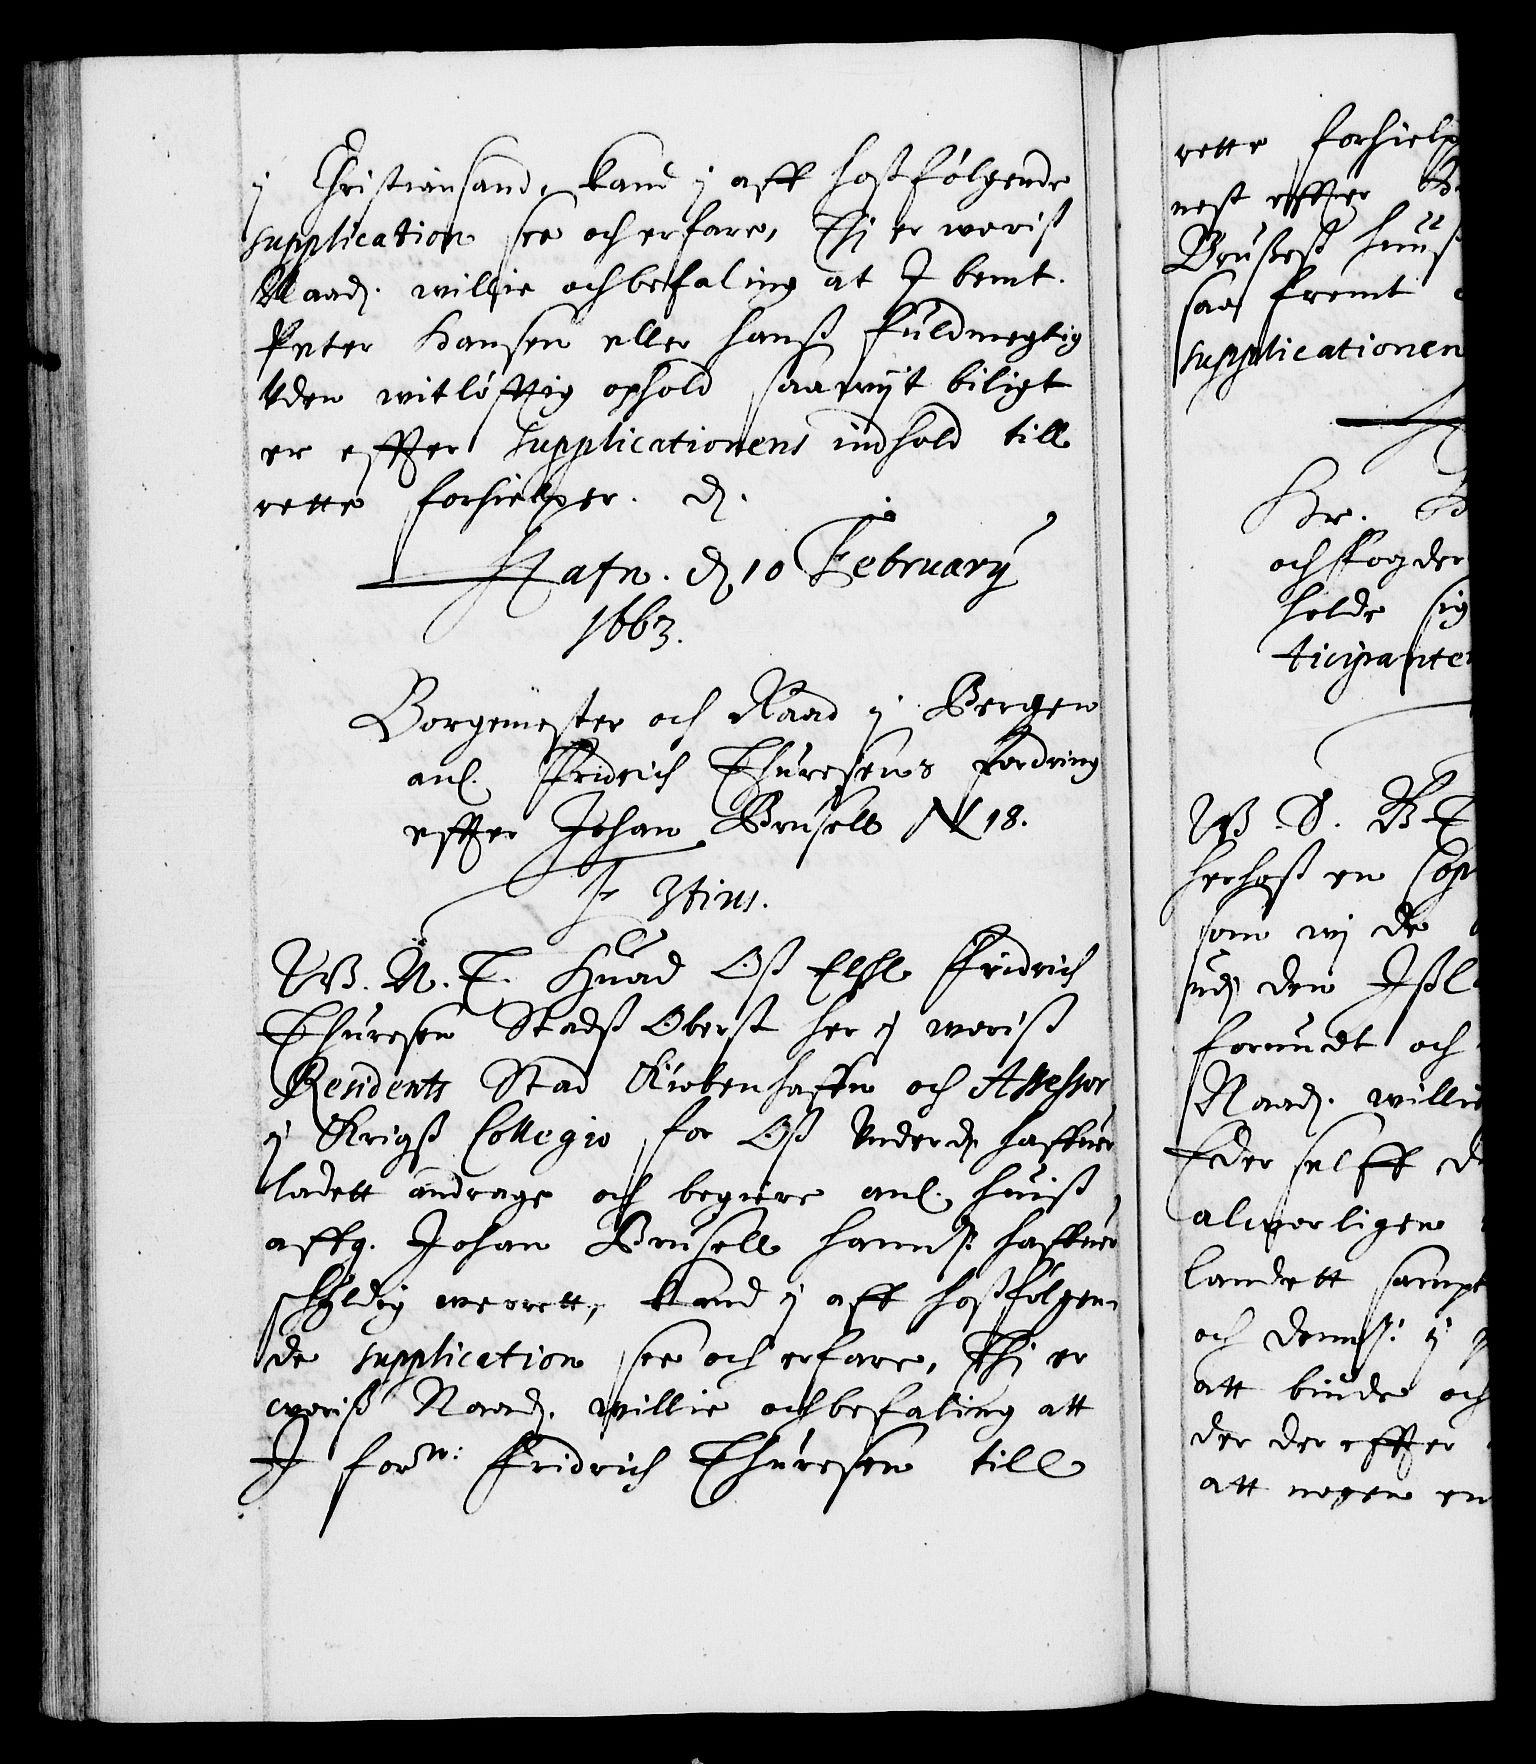 j Christiansand, kand j aff hoßfølgende
supplication see och erfare, Thj er woriß
Naad. willie och befaling at I bemt.
Peter Hansen eller hanß fuldmegtig
Uden witløfftig ophold saawijt biligt
er effter supplicationens indhold till
rette forhielper. d.
Hafn. d. 10 February
1663.
Borgemester och Raad j Bergen
anl. Fridrich Thuresens fordring
effter Johan Bruselt N 18.
Fr 3tius.
W. N. T. Huad Oß Elskl Fridrich
Thuresen Stadß Oberst her j woriß
Residents Stad Kiøbenhaffn och Assessor
j Krigß Collegio for Oß Underd. haffuer
ladett andrage och begiere anl. huiß
affg. Johan Bruselt hannß. haffuer
skyldig werrett, kand j aff hoßfølgen-
de supplication see och erfare, Thj er
woriß Naad. willie och befaling att
I forn: Fridrich Thuresen till
rette forhielp
nest effter
Brußelß huuß
saa fremt
supplicationen
Hr.
och Fogder
holde sig
ticipanter
W. G. B. T.
herhoß en Cop
som wj de
den Ißl
forundt och
Naad. willie
Eder selff
alworligen
landett sampt
och dennß: j
att binde och
der der effter
att nogen en